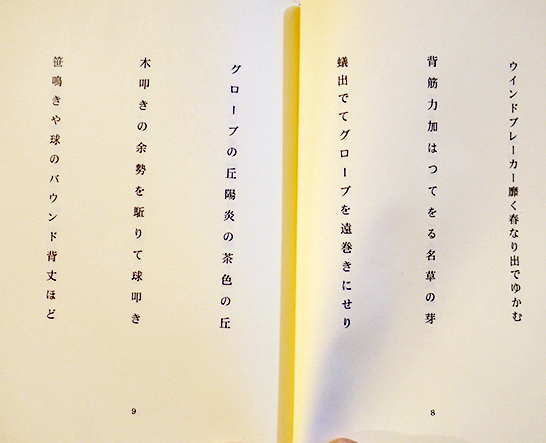 ウインドブレーカー靡く春なり出でゆかむ
背筋力加はつてをる名草の芽
蟻出でてグローブを遠巻きにせり
8
グローブの丘陽炎の茶色の丘
木叩きの余勢を駈りて球叩き
笹鳴きや球のバウンド背丈ほど
9